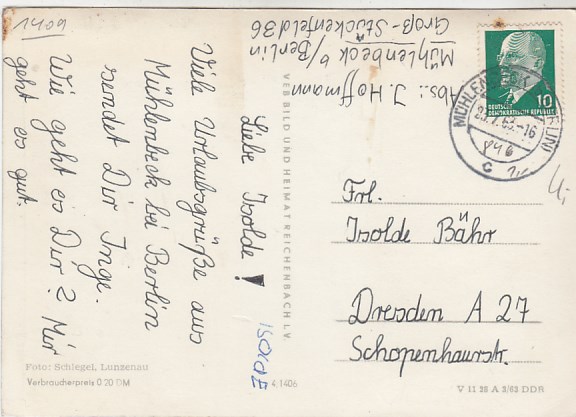 1409
Liebe Isolde!
Viele Urlaubsgrüße aus
Mühlenbeck bei Berlin
sendet Dir Inge.
Wie geht es Dir? Mir
geht es gut.
Abs.: J. Hoffmann
Mühlenbeck b/Berlin
Groß-Stückenfeld 36
VEB BILD UND HEIMAT REICHENBACH I. V.
DEUTSCHE
DEMOKRATISCHE REPUBLIK
10
846
c
4,-
Frl.
Isolde Bähr
Dresden A 27
Schopenhaurstr.
ISOLDE
Foto: Schlegel, Lunzenau
Verbraucherpreis 0.20 DM
4/1406
V 11 28 A 3/63 DDR